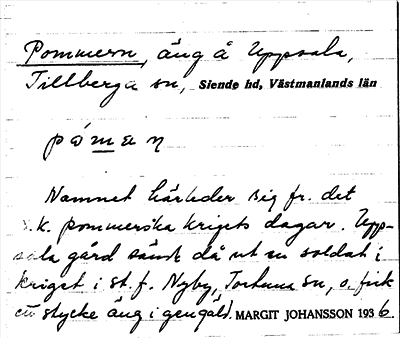 Pommern, äng å Uppsala,
Tillberga sn, Siende hd, Västmanlands län
Namnet härleder sig fr. det
s.k. pommerska krigets dagar. Upp-
sala gård sände då ut en soldat i
kriget i st. f. Nyby, Tortuna sn, o. fick
ett stycke äng i gengäld. MARGIT JOHANSSON 1936.